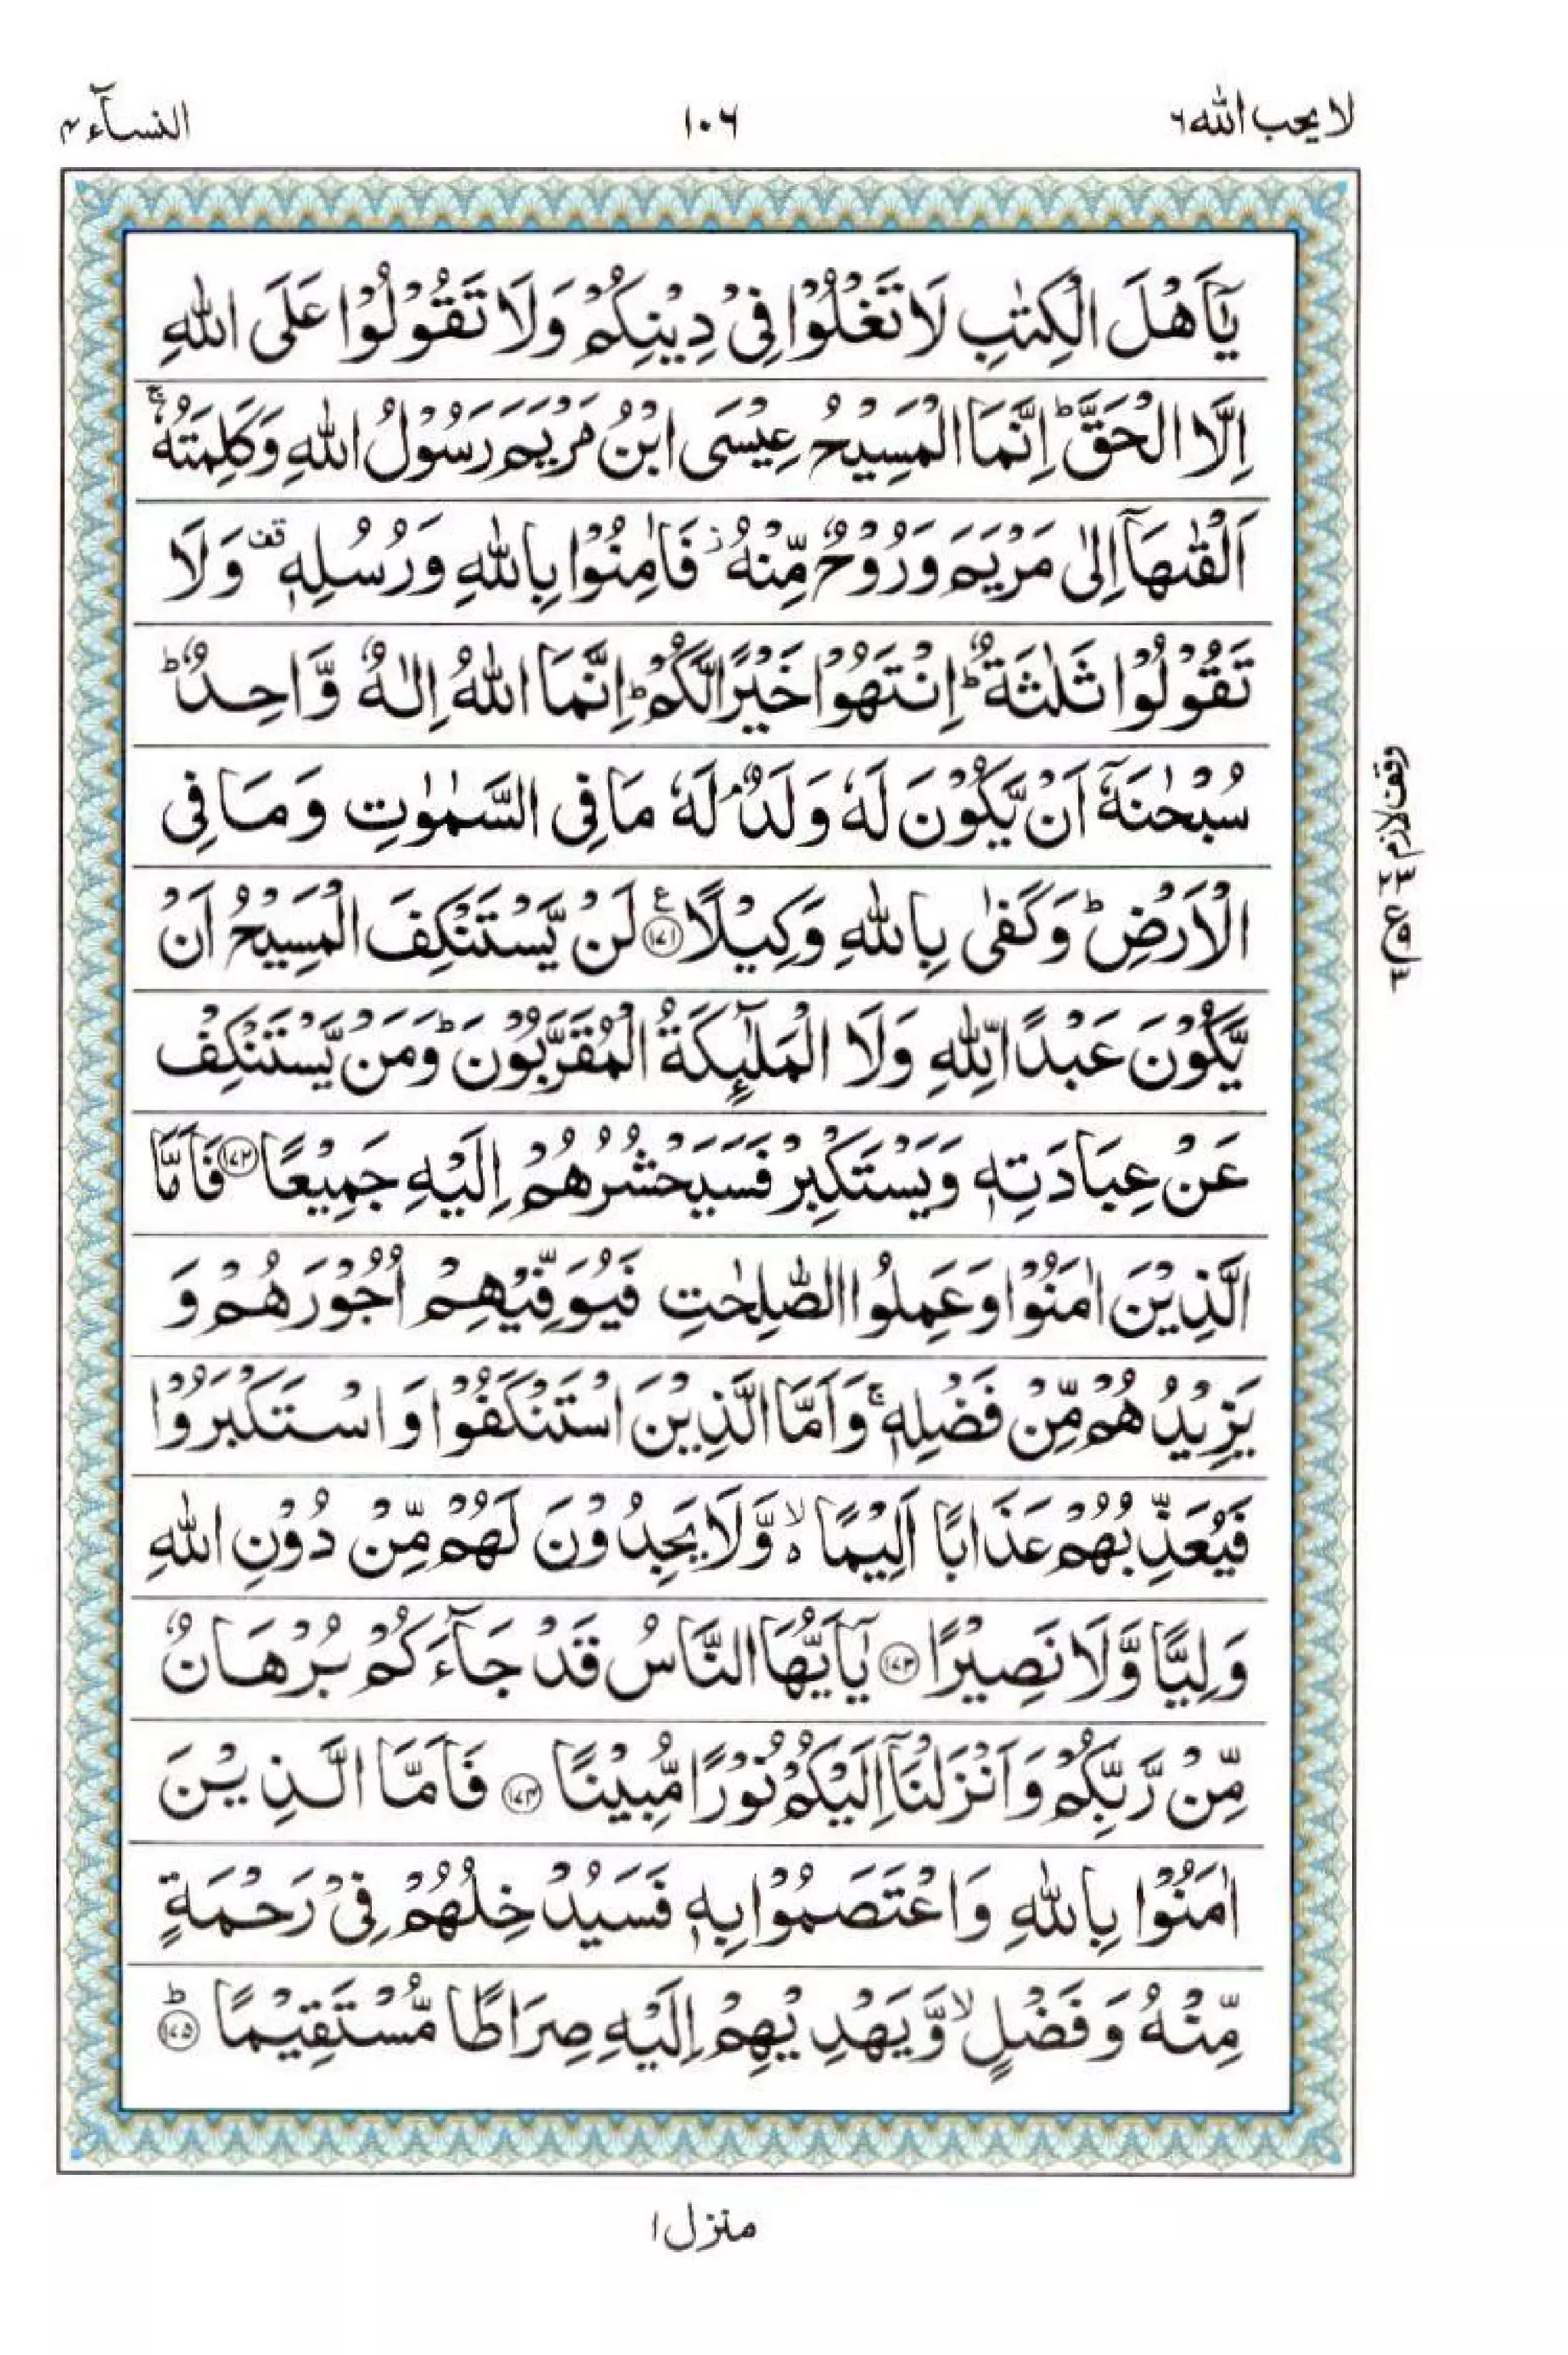 لا یحب الله ۶
۱۰۶
النسآء ۴
یٰۤاَهْلَ الْکِتٰبِ لَا تَغْلُوْا فِیْ دِیْنِکُمْ وَلَا تَقُوْلُوْا عَلَی اللّٰهِ
اِلَّا الْحَقَّ ؕ اِنَّمَا الْمَسِیْحُ عِیْسَی ابْنُ مَرْیَمَ رَسُوْلُ اللّٰهِ وَکَلِمَتُهٗ ۚ
اَلْقٰىهَاۤ اِلٰی مَرْیَمَ وَرُوْحٌ مِّنْهُ ؗ فَاٰمِنُوْا بِاللّٰهِ وَرُسُلِهٖ ۟قف وَلَا
تَقُوْلُوْا ثَلٰثَةٌ ؕ اِنْتَهُوْا خَیْرًا لَّکُمْ ؕ اِنَّمَا اللّٰهُ اِلٰهٌ وَّاحِدٌ ؕ
سُبْحٰنَهٗۤ اَنْ یَّکُوْنَ لَهٗ وَلَدٌ ۘ لَهٗ مَا فِی السَّمٰوٰتِ وَمَا فِی
الْاَرْضِ ؕ وَکَفٰی بِاللّٰهِ وَکِیْلًا ﴿۱۷۱﴾ ع لَنْ یَّسْتَنْکِفَ الْمَسِیْحُ اَنْ
یَّکُوْنَ عَبْدًا لِّلّٰهِ وَلَا الْمَلٰٓئِکَةُ الْمُقَرَّبُوْنَ ؕ وَمَنْ یَّسْتَنْکِفْ
عَنْ عِبَادَتِهٖ وَیَسْتَکْبِرْ فَسَیَحْشُرُهُمْ اِلَیْهِ جَمِیْعًا ﴿۱۷۲﴾ فَاَمَّا
الَّذِیْنَ اٰمَنُوْا وَعَمِلُوا الصّٰلِحٰتِ فَیُوَفِّیْهِمْ اُجُوْرَهُمْ وَ
یَزِیْدُهُمْ مِّنْ فَضْلِهٖ ۚ وَاَمَّا الَّذِیْنَ اسْتَنْکَفُوْا وَاسْتَکْبَرُوْا
فَیُعَذِّبُهُمْ عَذَابًا اَلِیْمًا ۙ۬ وَّلَا یَجِدُوْنَ لَهُمْ مِّنْ دُوْنِ اللّٰهِ
وَلِیًّا وَّلَا نَصِیْرًا ﴿۱۷۳﴾ یٰۤاَیُّهَا النَّاسُ قَدْ جَآءَکُمْ بُرْهَانٌ
مِّنْ رَّبِّکُمْ وَاَنْزَلْنَاۤ اِلَیْکُمْ نُوْرًا مُّبِیْنًا ﴿۱۷۴﴾ فَاَمَّا الَّذِیْنَ
اٰمَنُوْا بِاللّٰهِ وَاعْتَصَمُوْا بِهٖ فَسَیُدْخِلُهُمْ فِیْ رَحْمَةٍ
مِّنْهُ وَفَضْلٍ ۙ وَّیَهْدِیْهِمْ اِلَیْهِ صِرَاطًا مُّسْتَقِیْمًا ﴿۱۷۵﴾ ؕ
وقف لازم
منزل ۱